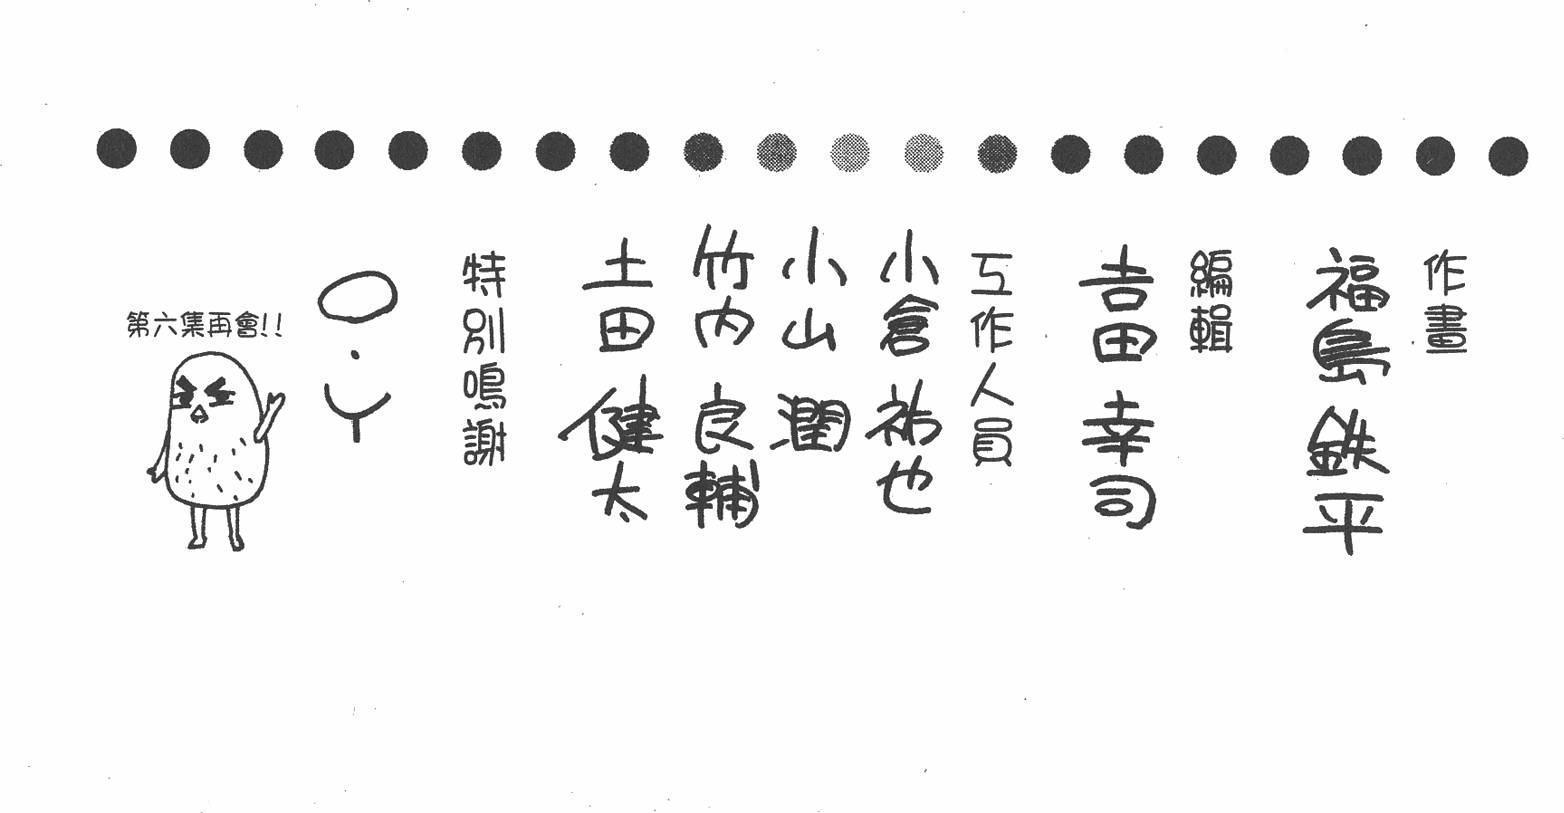 作畫
福島 鉄平
編輯
吉田 幸司
工作人員
小倉 祐也
小山 潤
竹内 良輔
土田 健太
特別鳴謝
O.Y
第六集再會!!